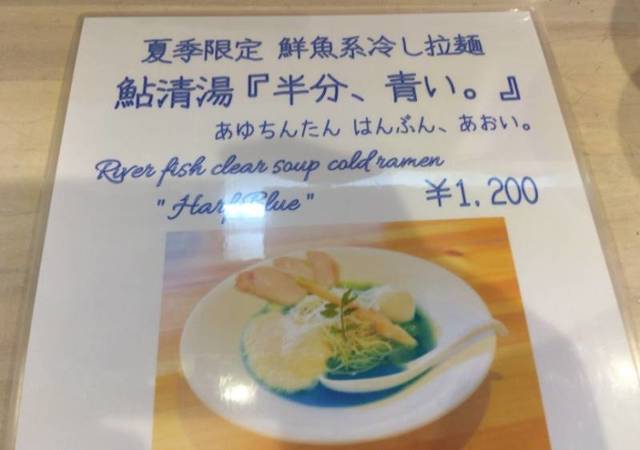 夏季限定 鮮魚系冷し拉麺
鮎清湯『半分、青い。』
あゆちんたん はんぶん、あおい。
River fish clear soup cold ramen
"Harf Blue"
¥1,200